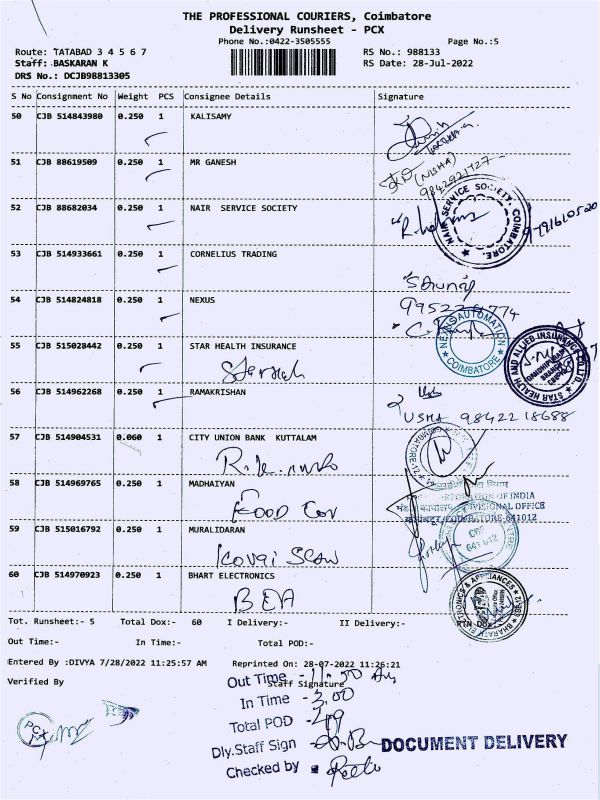 THE PROFESSIONAL COURIERS, Coimbatore
Delivery Runsheet - PCX
Phone No.:0422-3505555 Page No.:5
Route: TATABAD 3 4 5 6 7 RS No.: 988133
Staff: BASKARAN K RS Date: 28-Jul-2022
DRS No.: DCJB98813305
S No Consignment No Weight PCS Consignee Details Signature
50 CJB 514843980 0.250 1 KALISAMY
51 CJB 88619509 0.250 1 MR GANESH
(NISHA)
9842921727
52 CJB 88682034 0.250 1 NAIR SERVICE SOCIETY
NAIR SERVICE SOCIETY. COIMBATORE.
53 CJB 514933661 0.250 1 CORNELIUS TRADING
54 CJB 514824818 0.250 1 NEXUS
NEXUS AUTOMATION COIMBATORE
55 CJB 515028442 0.250 1 STAR HEALTH INSURANCE
STAR HEALTH AND ALLIED INSURANCE CO.LTD.
56 CJB 514962268 0.250 1 RAMAKRISHAN
USHA 9842218688
57 CJB 514904531 0.060 1 CITY UNION BANK KUTTALAM
58 CJB 514969765 0.250 1 MADHAIYAN
FOOD Cor
OF INDIA
DIVISIONAL OFFICE
COIMBATORE-641012
59 CJB 515016792 0.250 1 MURALIDARAN
Kovai Scan
60 CJB 514970923 0.250 1 BHART ELECTRONICS
BEA
BHARATH ELECTRONICS & APPLIANCES
Tot. Runsheet:- 5 Total Dox:- 60 I Delivery:- II Delivery:- RTN Dox:-
Out Time:- In Time:- Total POD:-
Entered By :DIVYA 7/28/2022 11:25:57 AM Reprinted On: 28-07-2022 11:26:21
Verified By Staff Signature
Out Time - 11.50
In Time - 3.00
Total POD -
Dly.Staff Sign
Checked by
DOCUMENT DELIVERY
PCX